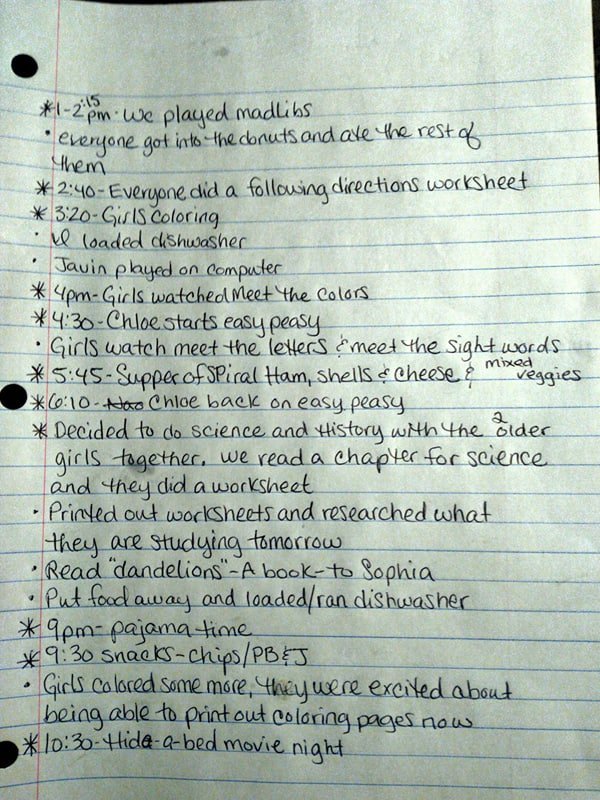 *1-2:15pm· We played madlibs
· everyone got into the donuts and ate the rest of
them
* 2:40- Everyone did a following directions worksheet
* 3:20- Girls coloring
· I loaded dishwasher
· Javin played on computer
* 4pm- Girls watched Meet the colors
* 4:30- Chloe starts easy peasy
· Girls watch meet the letters & meet the sight words
* 5:45- Supper of Spiral Ham, shells & cheese & mixed veggies
* 6:10- Chloe back on easy peasy
* Decided to do science and History with the 2 older
girls together. we read a chapter for science
and they did a worksheet
· Printed out worksheets and researched what
they are studying tomorrow
· Read "dandelions"- A book- to Sophia
· Put food away and loaded/ran dishwasher
* 9pm- pajama time
* 9:30 snacks- chips/PB&J
· Girls colored some more, they were excited about
being able to print out coloring pages now
* 10:30- Hide-a-bed movie night